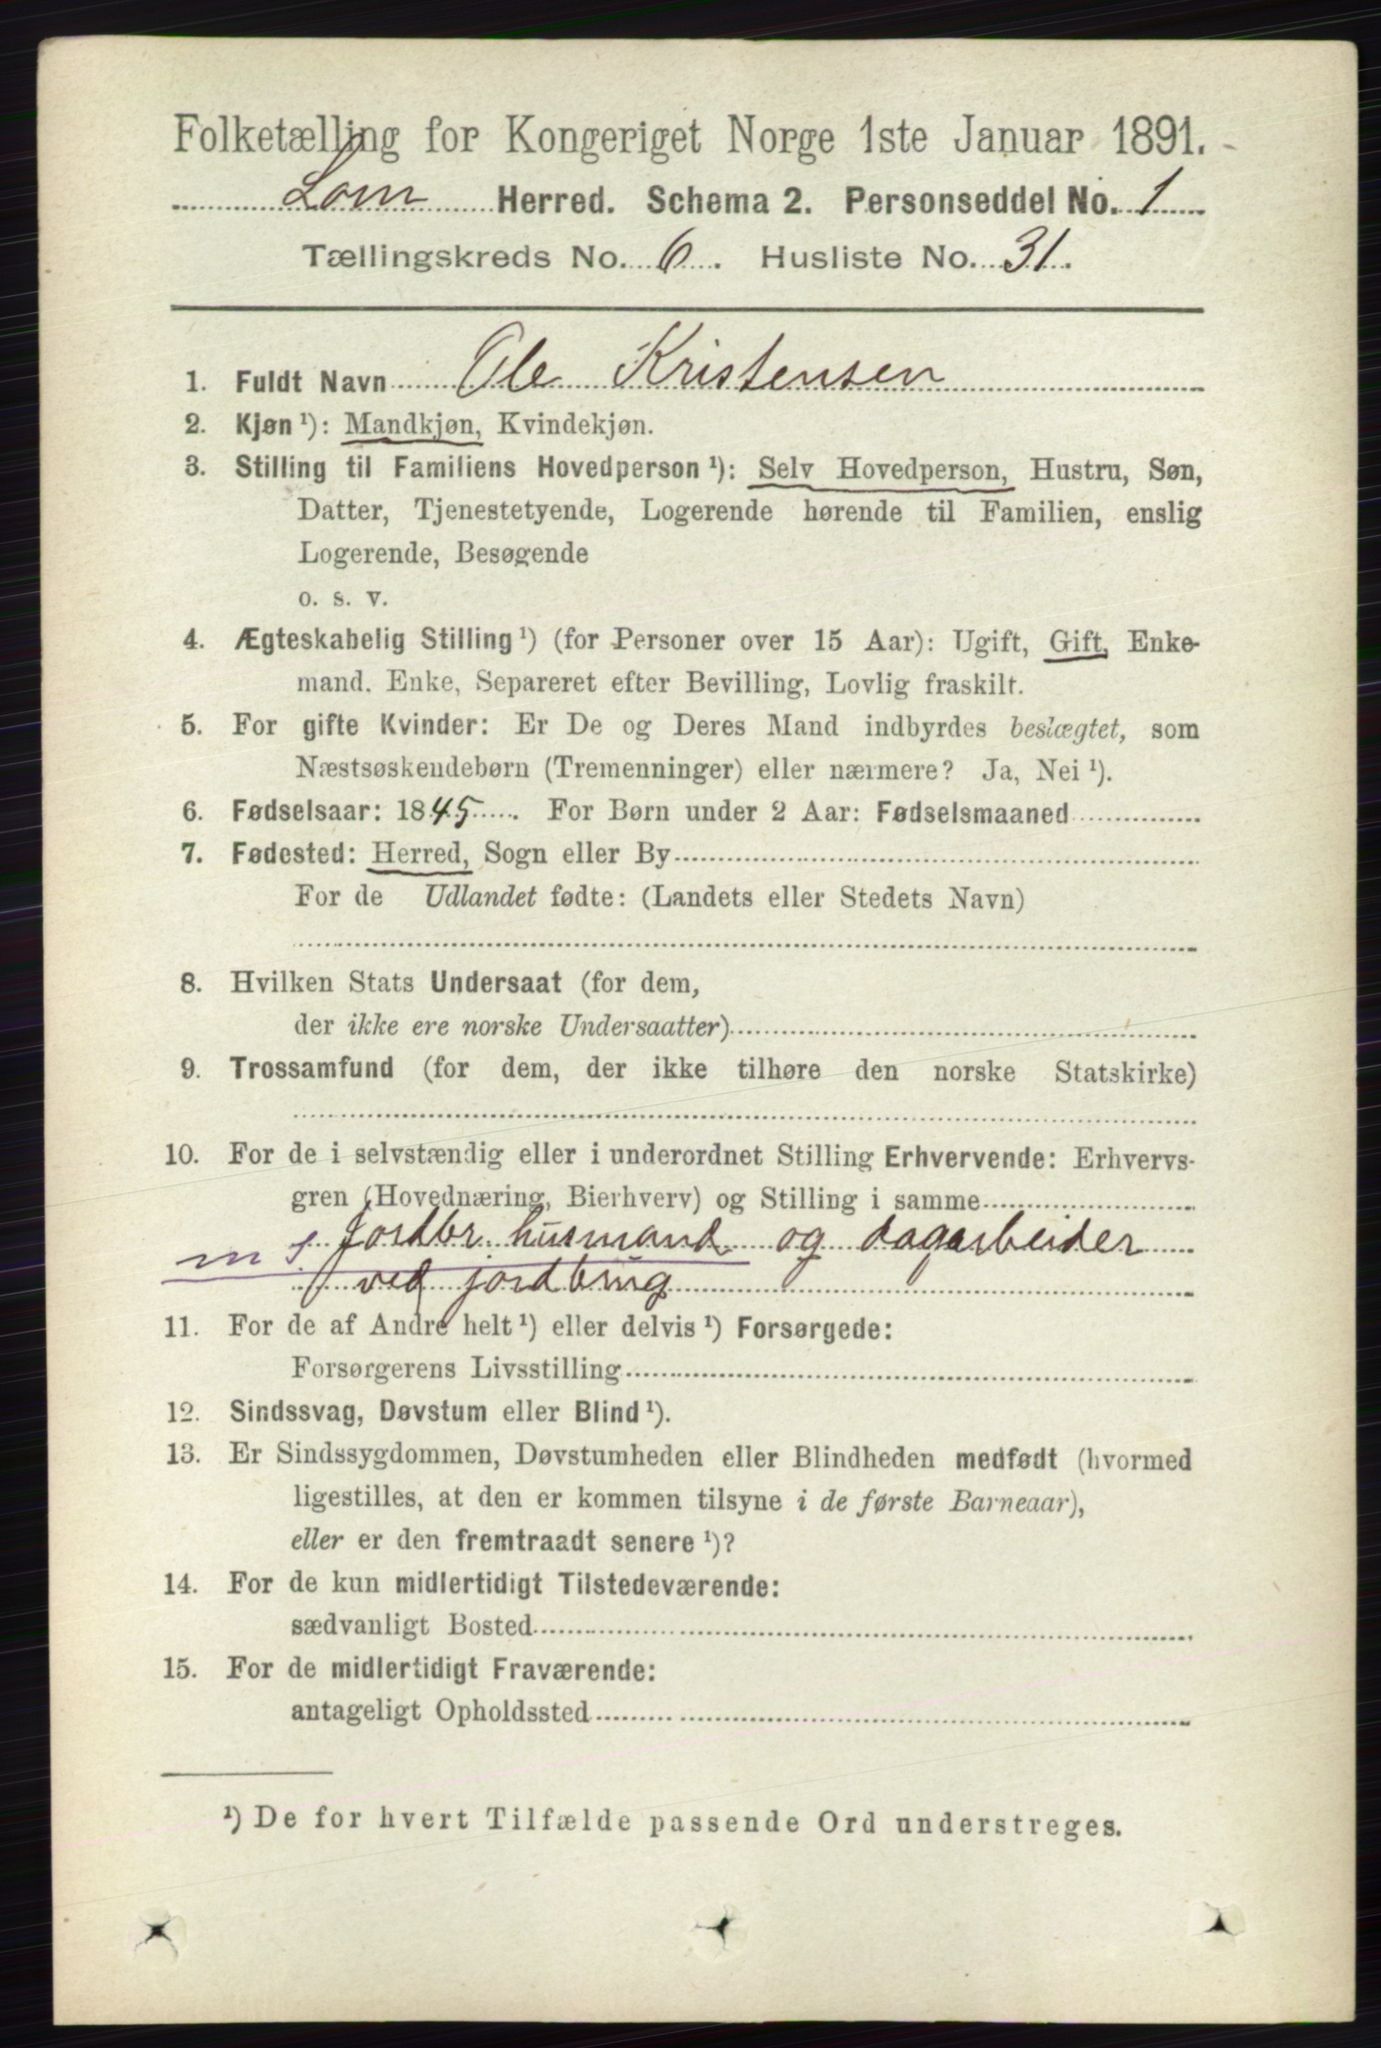 Folketælling for Kongeriget Norge 1ste Januar 1891.
Lom Herred. Schema 2. Personseddel No. 1
Tællingskreds No. 6. Husliste No. 31.
1. Fuldt Navn Ole Kristensen
2. Kjøn ¹): Mandkjøn, Kvindekjøn.
3. Stilling til Familiens Hovedperson ¹): Selv Hovedperson, Hustru, Søn,
Datter, Tjenestetyende, Logerende hørende til Familien, enslig
Logerende, Besøgende
o. s. v.
4. Ægteskabelig Stilling ¹) (for Personer over 15 Aar): Ugift, Gift, Enke-
mand. Enke, Separeret efter Bevilling, Lovlig fraskilt.
5. For gifte Kvinder: Er De og Deres Mand indbyrdes beslægtet, som
Næstsøskendebørn (Tremenninger) eller nærmere? Ja, Nei ¹).
6. Fødselsaar: 1845. For Børn under 2 Aar: Fødselsmaaned
7. Fødested: Herred, Sogn eller By
For de Udlandet fødte: (Landets eller Stedets Navn)
8. Hvilken Stats Undersaat (for dem,
der ikke ere norske Undersaatter)
9. Trossamfund (for dem, der ikke tilhøre den norske Statskirke)
10. For de i selvstændig eller i underordnet Stilling Erhvervende: Erhvervs-
gren (Hovednæring, Bierhverv) og Stilling i samme
m s jordbr. husmand og dagarbeider
ved jordbrug
11. For de af Andre helt ¹) eller delvis ¹) Forsørgede:
Forsørgerens Livsstilling
12. Sindssvag, Døvstum eller Blind ¹).
13. Er Sindssygdommen, Døvstumheden eller Blindheden medfødt (hvormed
ligestilles, at den er kommen tilsyne i de første Barneaar),
eller er den fremtraadt senere ¹)?
14. For de kun midlertidigt Tilstedeværende:
sædvanligt Bosted
15. For de midlertidigt Fraværende:
antageligt Opholdssted
¹) De for hvert Tilfælde passende Ord understreges.